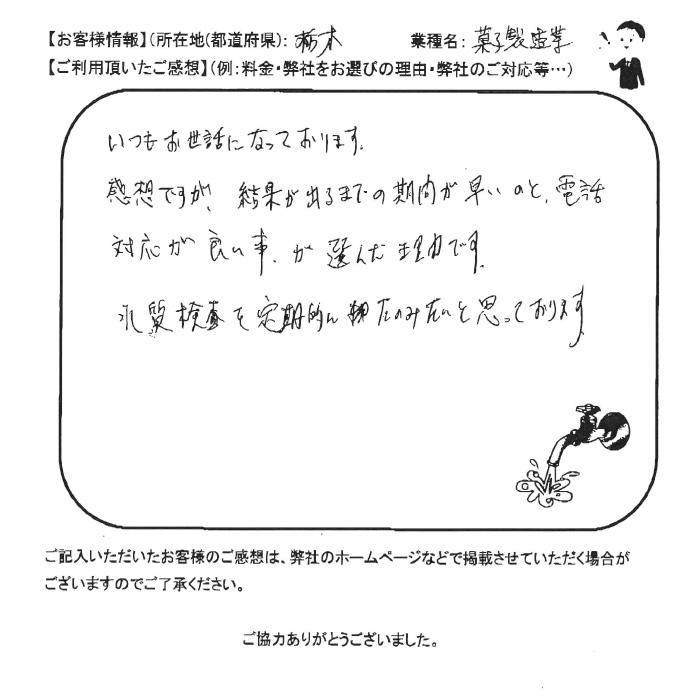 【お客様情報】(所在地(都道府県): 栃木 業種名: 菓子製造業
【ご利用頂いたご感想】(例:料金・弊社をお選びの理由・弊社のご対応等…)
いつもお世話になっております。
感想ですが、結果が出るまでの期間が早いのと、電話
対応が良い事、が選んだ理由です。
水質検査を定期的にたのみたいと思っております。
ご記入いただいたお客様のご感想は、弊社のホームページなどで掲載させていただく場合が
ございますのでご了承ください。
ご協力ありがとうございました。